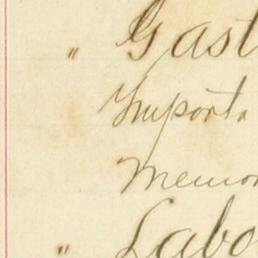 " Gast
Importa
Memor
" Labo